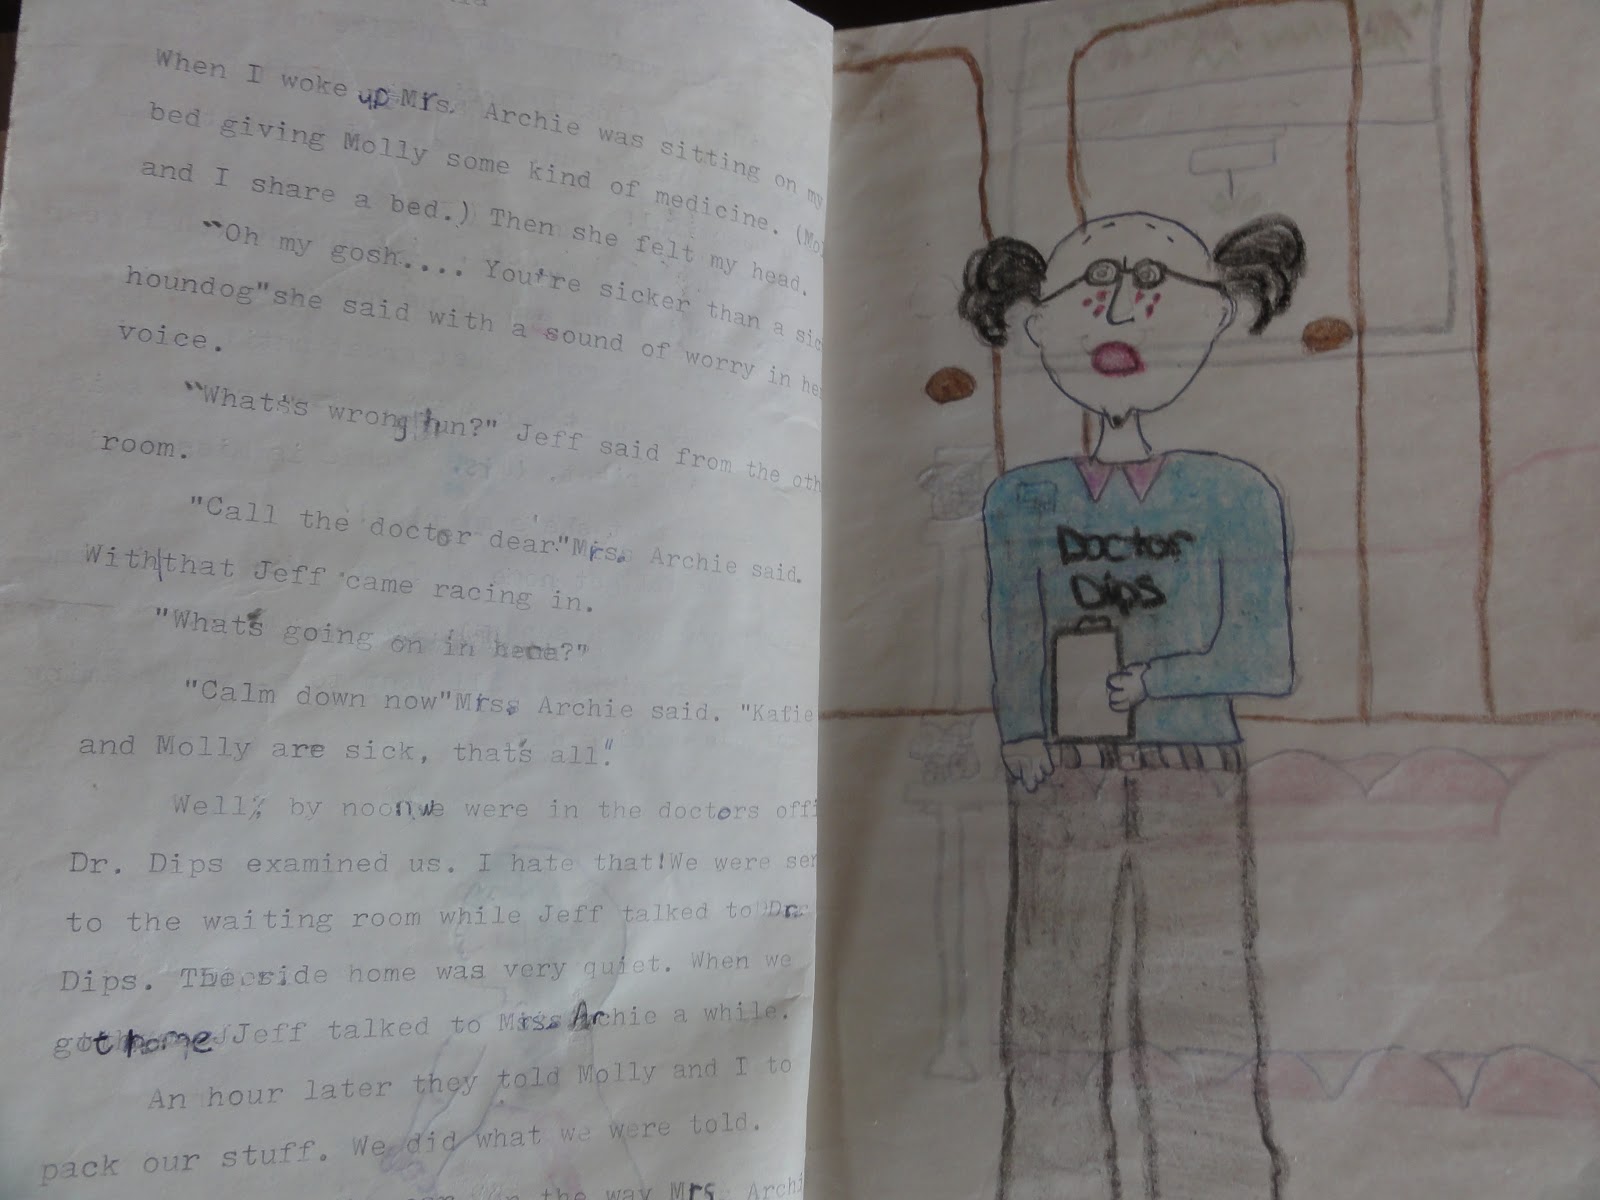 When I woke up Mrs. Archie was sitting on my
bed giving Molly some kind of medicine. (Mol
and I share a bed.) Then she felt my head.
"Oh my gosh.... You're sicker than a sic
houndog"she said with a sound of worry in her
voice.
"What's wrong hun?" Jeff said from the oth
room.
"Call the doctor dear."Mrs. Archie said.
With that Jeff came racing in.
"What's going on in here?"
"Calm down now"Mrs. Archie said. "Katie
and Molly are sick, that's all."
Well, by noon we were in the doctors offi
Dr. Dips examined us. I hate that!We were sen
to the waiting room while Jeff talked to Dr.
Dips. The ride home was very quiet. When we
got home Jeff talked to Mrs. Archie a while.
An hour later they told Molly and I to
pack our stuff. We did what we were told.
the way Mrs. Archi
Doctor
Dips